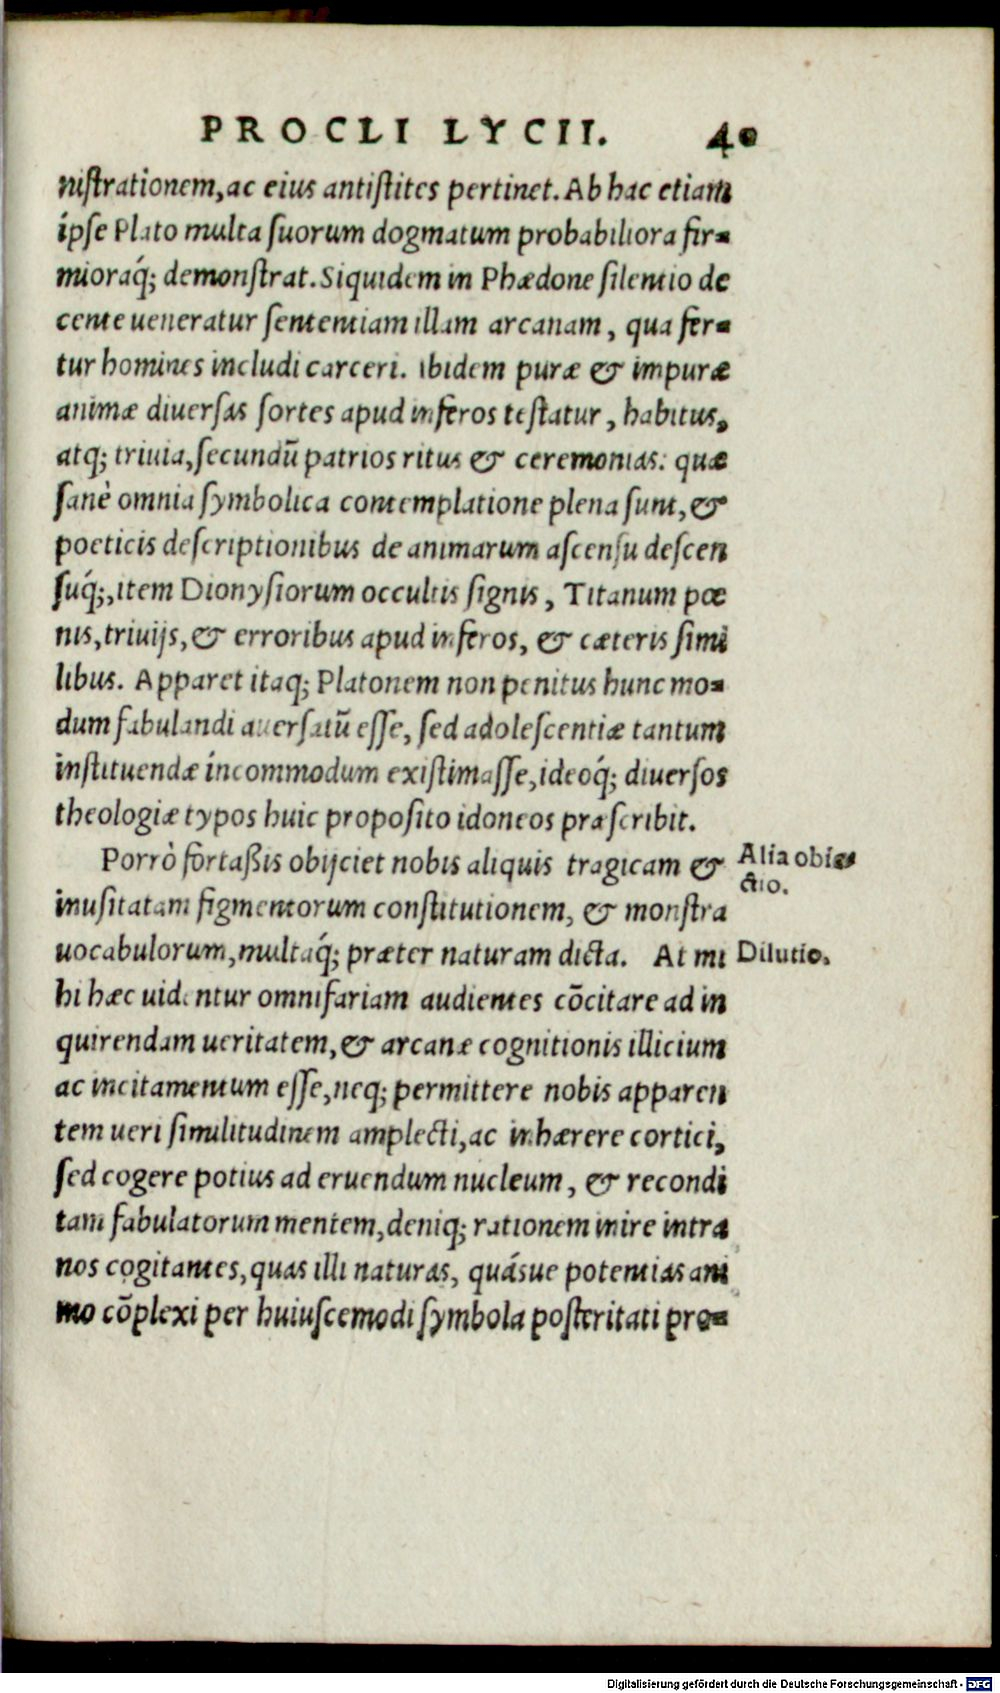 PROCLI LYCII. 40
nistrationem, ac eius antistites pertinet. Ab hac etiam
ipse Plato multa suorum dogmatum probabiliora fir-
mioraq́; demonstrat. Siquidem in Phædone silentio de
cente ueneratur sententiam illam arcanam, qua fer-
tur homines includi carceri. Ibidem puræ & impuræ
animæ diuersas sortes apud inferos testatur, habitus,
atq; triuia, secundũ patrios ritus & ceremonias: quæ
sanè omnia symbolica contemplatione plena sunt, &
poeticis descriptionibus de animarum ascensu descen
suq́;, item Dionysiorum occultis signis, Titanum pœ
nis, triuijs, & erroribus apud inferos, & cæteris simi
libus. Apparet itaq; Platonem non penitus hunc mo-
dum fabulandi auersatũ esse, sed adolescentiæ tantum
instituendæ incommodum existimasse, ideoq́; diuersos
theologiæ typos huic proposito idoneos præscribit.
Porrò fortaßis obijciet nobis aliquis tragicam &
Alia obie-
ctio.
inusitatam figmentorum constitutionem, & monstra
uocabulorum, multaq́; præter naturam dicta. At mi
Dilutio.
hi hæc uidentur omnifariam audientes cõcitare ad in
quirendam ueritatem, & arcanæ cognitionis illicium
ac incitamentum esse, neq; permittere nobis apparen
tem ueri similitudinem amplecti, ac inhærere cortici,
sed cogere potius ad eruendum nucleum, & recondi
tam fabulatorum mentem, deniq; rationem inire intra
nos cogitantes, quas illi naturas, quásue potentias ani
mo cõplexi per huiuscemodi symbola posteritati pro-
Digitalisierung gefördert durch die Deutsche Forschungsgemeinschaft - DFG